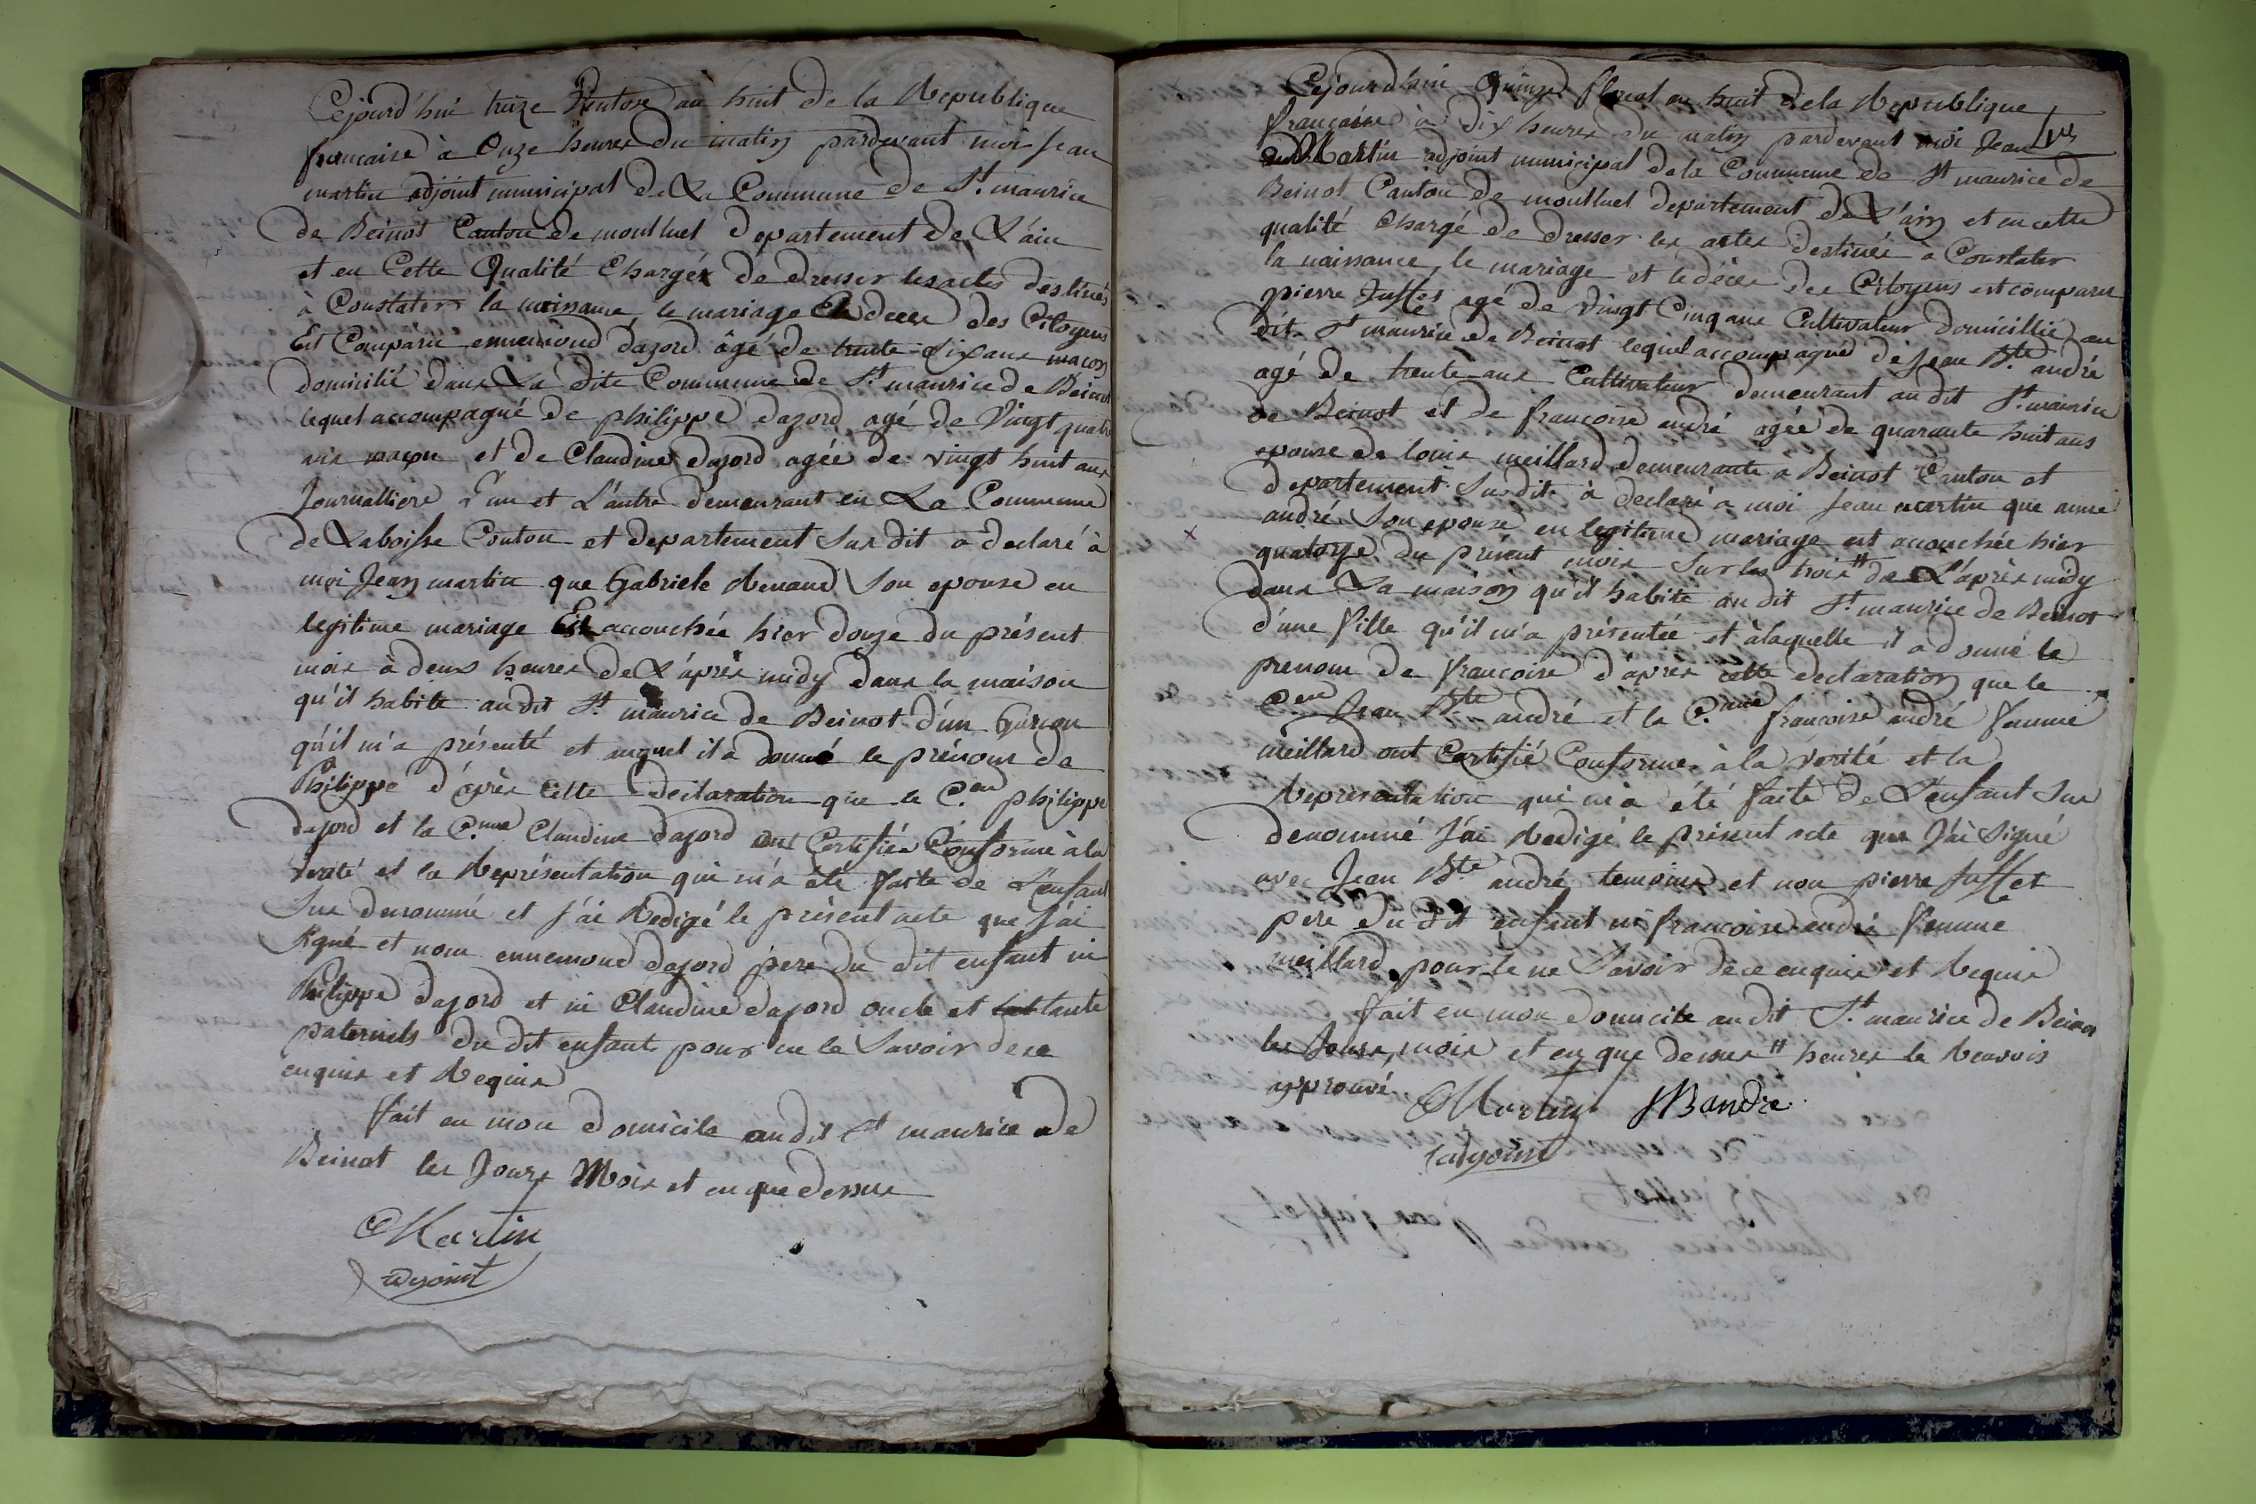 Cejourd'hui treize Ventose an huit de la Republique
francaise à Onze heures du matin pardevant moi Jean
martin adjoint municipal de La Commune de St. maurice
de Beinost Canton de montluel departement de L'ain
et en Cette Qualité Chargée de dresser les actes destinés
à Constater la naissance, le mariage et le deces des Citoyens
Est Comparu ennemond dajord âgé de trente-six ans macon
domicilié dans La dite Commune de St. maurice de Beinost
lequel accompagné de philippe dajord agé de Vingt quatre
ans maçon et de Claudine dajord agée de vingt huit ans
Journalliere L'un et L'autre demeurant en La Commune
de Laboisse Canton et departement Sus dit a declaré à
moi Jean martin que Gabriele Renaud Son epouse en
legitime mariage Est accouchée hier douze du présent
mois à deux heures de L'après midy dans la maison
qu'il habite au dit St. maurice de Beinost d'un Garcon
qu'il m'a présenté et auquel il a donné le prénom de
Philippe d'après Cette declaration que le C.en philippe
dajord et la C.nne Claudine dajord ont Certifiés Conforme à la
verité et la Représentation qui m'a été faite de L'enfant
Sus denommé et J'ai Redigé le présent acte que J'ai
signé et non ennemond dajord père du dit enfant ni
Philippe dajord et ni Claudine dajord oncle et tante
paternels du dit enfant pour ne le Savoir de ce
enquis et Requis
fait en mon domicile au dit St maurice de
Beinost les Jours Mois et en que dessus
Martin
adjoint
Cejourd'hui Quinze floreal an huit de la Republique
francaise à dix heures du matin pardevant moi Jean
Martin adjoint municipal de la Commune de St maurice de
Beinost Canton de montluel departement de L'ain et en cette
qualité Chargé de dresser les actes destinés à Constater
la naissance, le mariage et le décès des Citoyens est comparu
pierre Juffet agé de Vingt Cinq ans Cultivateur domicillié au
dit St maurice de Beinost lequel accompagné de Jean Bte. andré
agé de trente ans Cultivateur demeurant au dit St. maurice
de Beinost et de francoise andré agée de quarante huit ans
epouse de louis meillard demeurante à Beinost Canton et
departement Sus dit à declaré a moi Jean martin que anne
andré Son epouse en legitime mariage est accouchée hier
quatorze du présent mois Sur les trois # de L'après midy
dans La maison qu'il habite au dit St. maurice de Beinost
d'une fille qu'il m'a présentée et à laquelle il a donné le
prenom de francoise d'après cette declaration que le
C.en Jean Bte andré et la C.nne francoise andré femme
meillard ont Certifié Conforme à la verité et la
Représentation qui m'a été faite de L'enfant Sus
denommé J'ai Redigé le présent acte que J'ai Signé
avec Jean Bte andré temoins et non pierre Juffet
pere du dit enfant ni francoise andré femme
meillard pour le ne Savoir de ce enquis et Requis
fait en mon domicile au dit St. maurice de Beinost
les Jours, mois et en que dessus # heures le Renvois
approuvé
Martin JB andre
adjoint